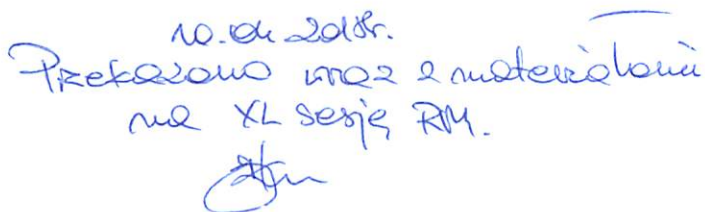 10.04.2018r.
Przekazano wraz z materiałami
na XL sesję RM.